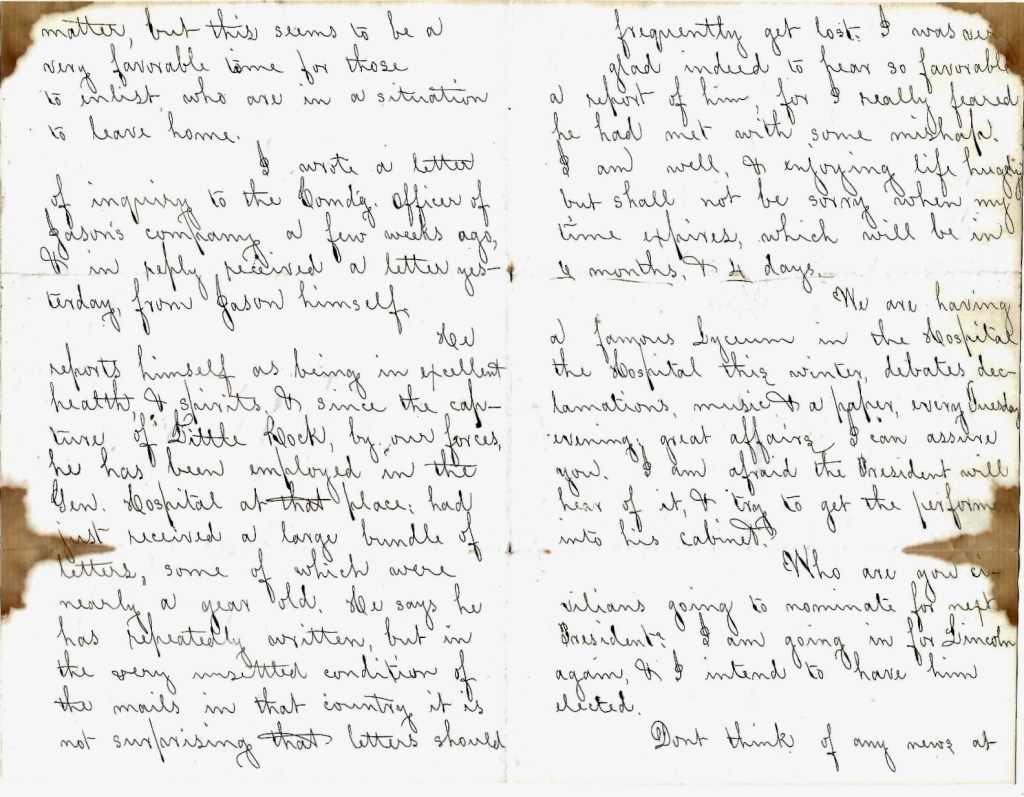 matter, but this seems to be a
very favorable time for those
to enlist, who are in a situation
to leave home.
I wrote a letter
of inquiry to the Comd'g. Officer of
Jason's company a few weeks ago,
& in reply received a letter yes-
terday, from Jason himself.
He
reports himself as being in excellent
health, & spirits, & since the cap-
ture of Little Rock, by our forces,
he has been employed in the
Gen. Hospital at that place; had
just received a large bundle of
letters, some of which were
nearly a year old. He says he
has repeatedly written, but in
the very unsettled condition of
the mails in that country it is
not surprising that letters should
frequently get lost. I was very
glad indeed to hear so favorable
a report of him, for I really feared
he had met with some mishap.
I am well, & enjoying life hugely
but shall not be sorry when my
time expires, which will be in
4 months, & 4 days.
We are having
a famous Lyceum in the Hospital
the Hospital this winter, debates dec-
lamations, music & a paper, every Tuesday
evening; great affairs, I can assure
you. I am afraid the President will
hear of it, & try to get the performers
into his cabinet.
Who are you ci-
vilians going to nominate for next
President? I am going in for Lincoln
again, & I intend to have him
elected.
Dont think of any news at